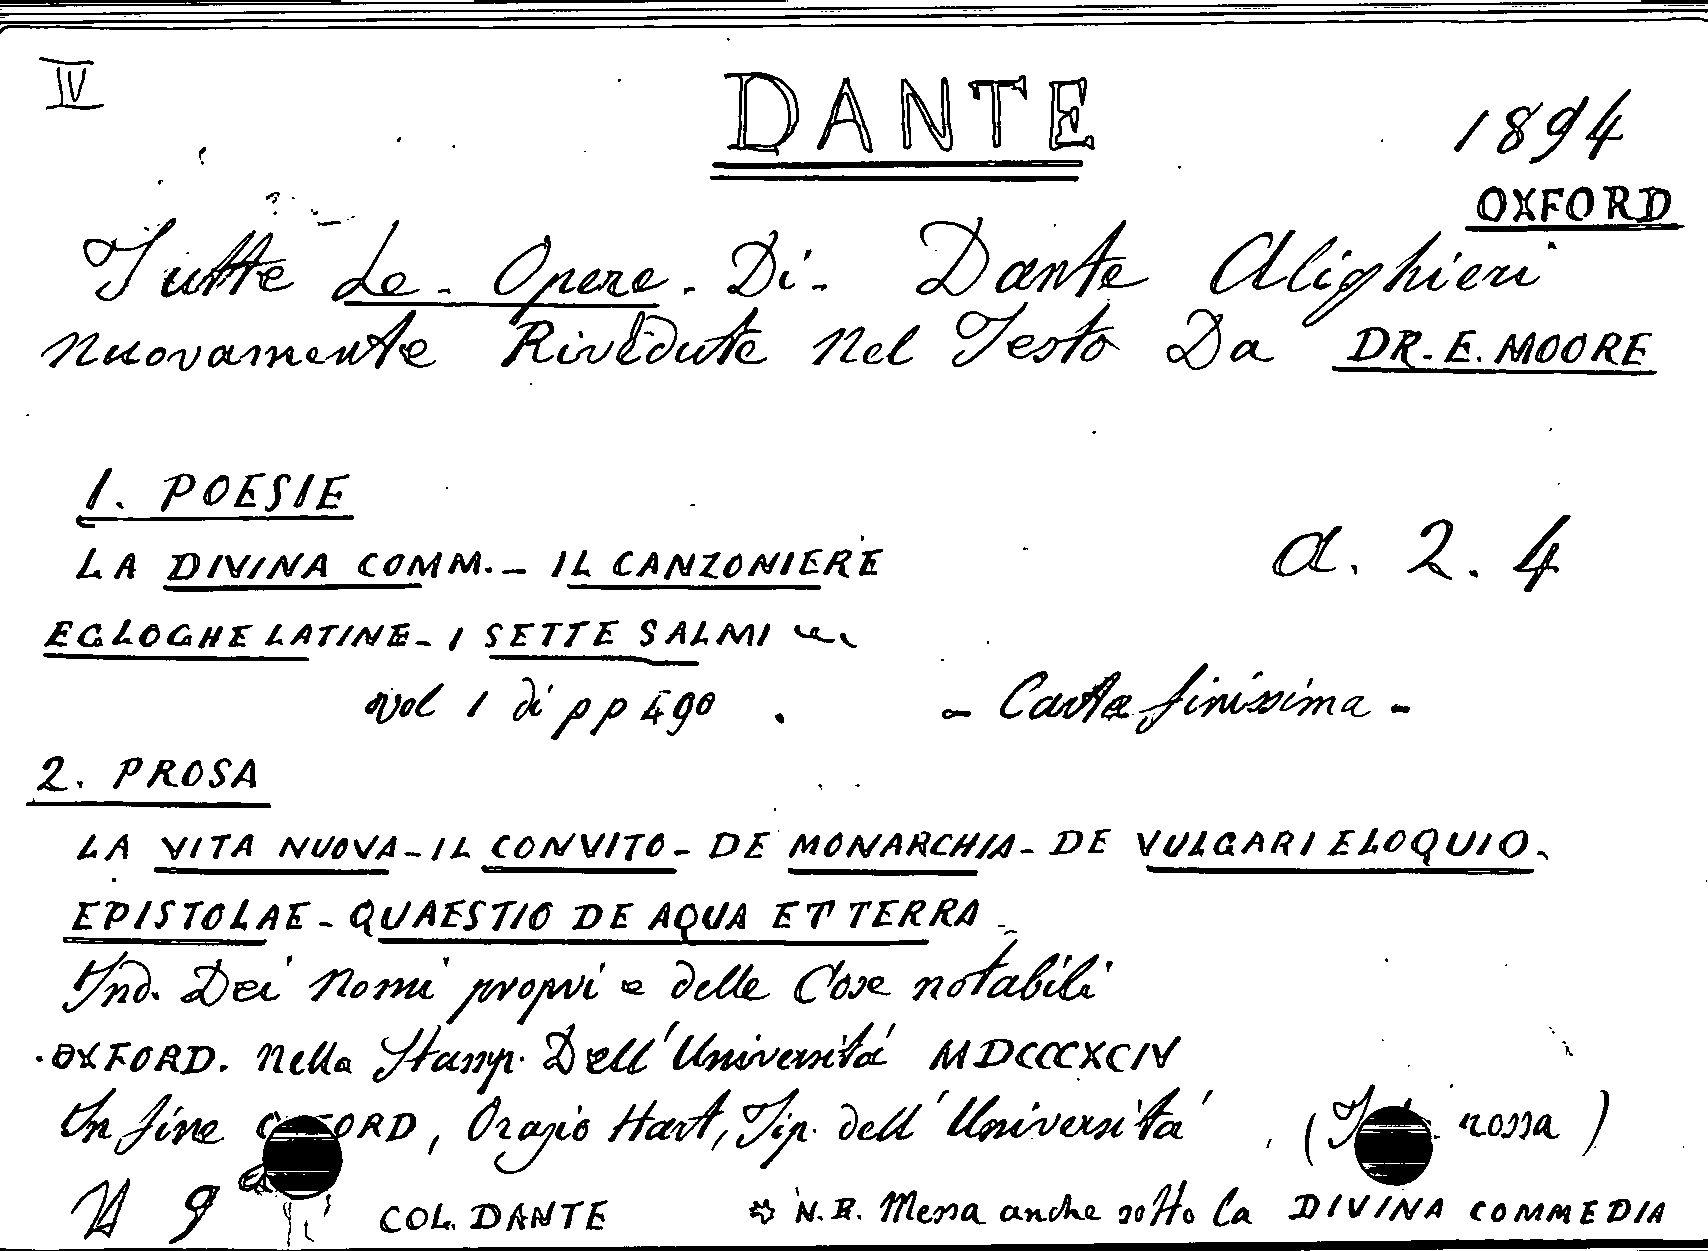 IV
DANTE
1894
OXFORD
Tutte Le - Opere - Di - Dante Alighieri
Nuovamente Rivedute Nel Testo Da DR. E. MOORE
1. POESIE
LA DIVINA COMM. - IL CANZONIERE
a. 2. 4
EGLOGHE LATINE - I SETTE SALMI
vol 1 di pp 490 . - Carta finissima -
2. PROSA
LA VITA NUOVA - IL CONVITO - DE MONARCHIA - DE VULGARI ELOQUIO -
EPISTOLAE - QUAESTIO DE AQUA ET TERRA -
Ind. Dei Nomi propri e delle Cose notabili
OXFORD. Nella Stamp. Dell'Università MDCCCXCIV
In fine OXFORD, Orazio Hart, Tip. dell'Università ( rossa )
9 COL. DANTE N.B. Messa anche sotto la DIVINA COMMEDIA